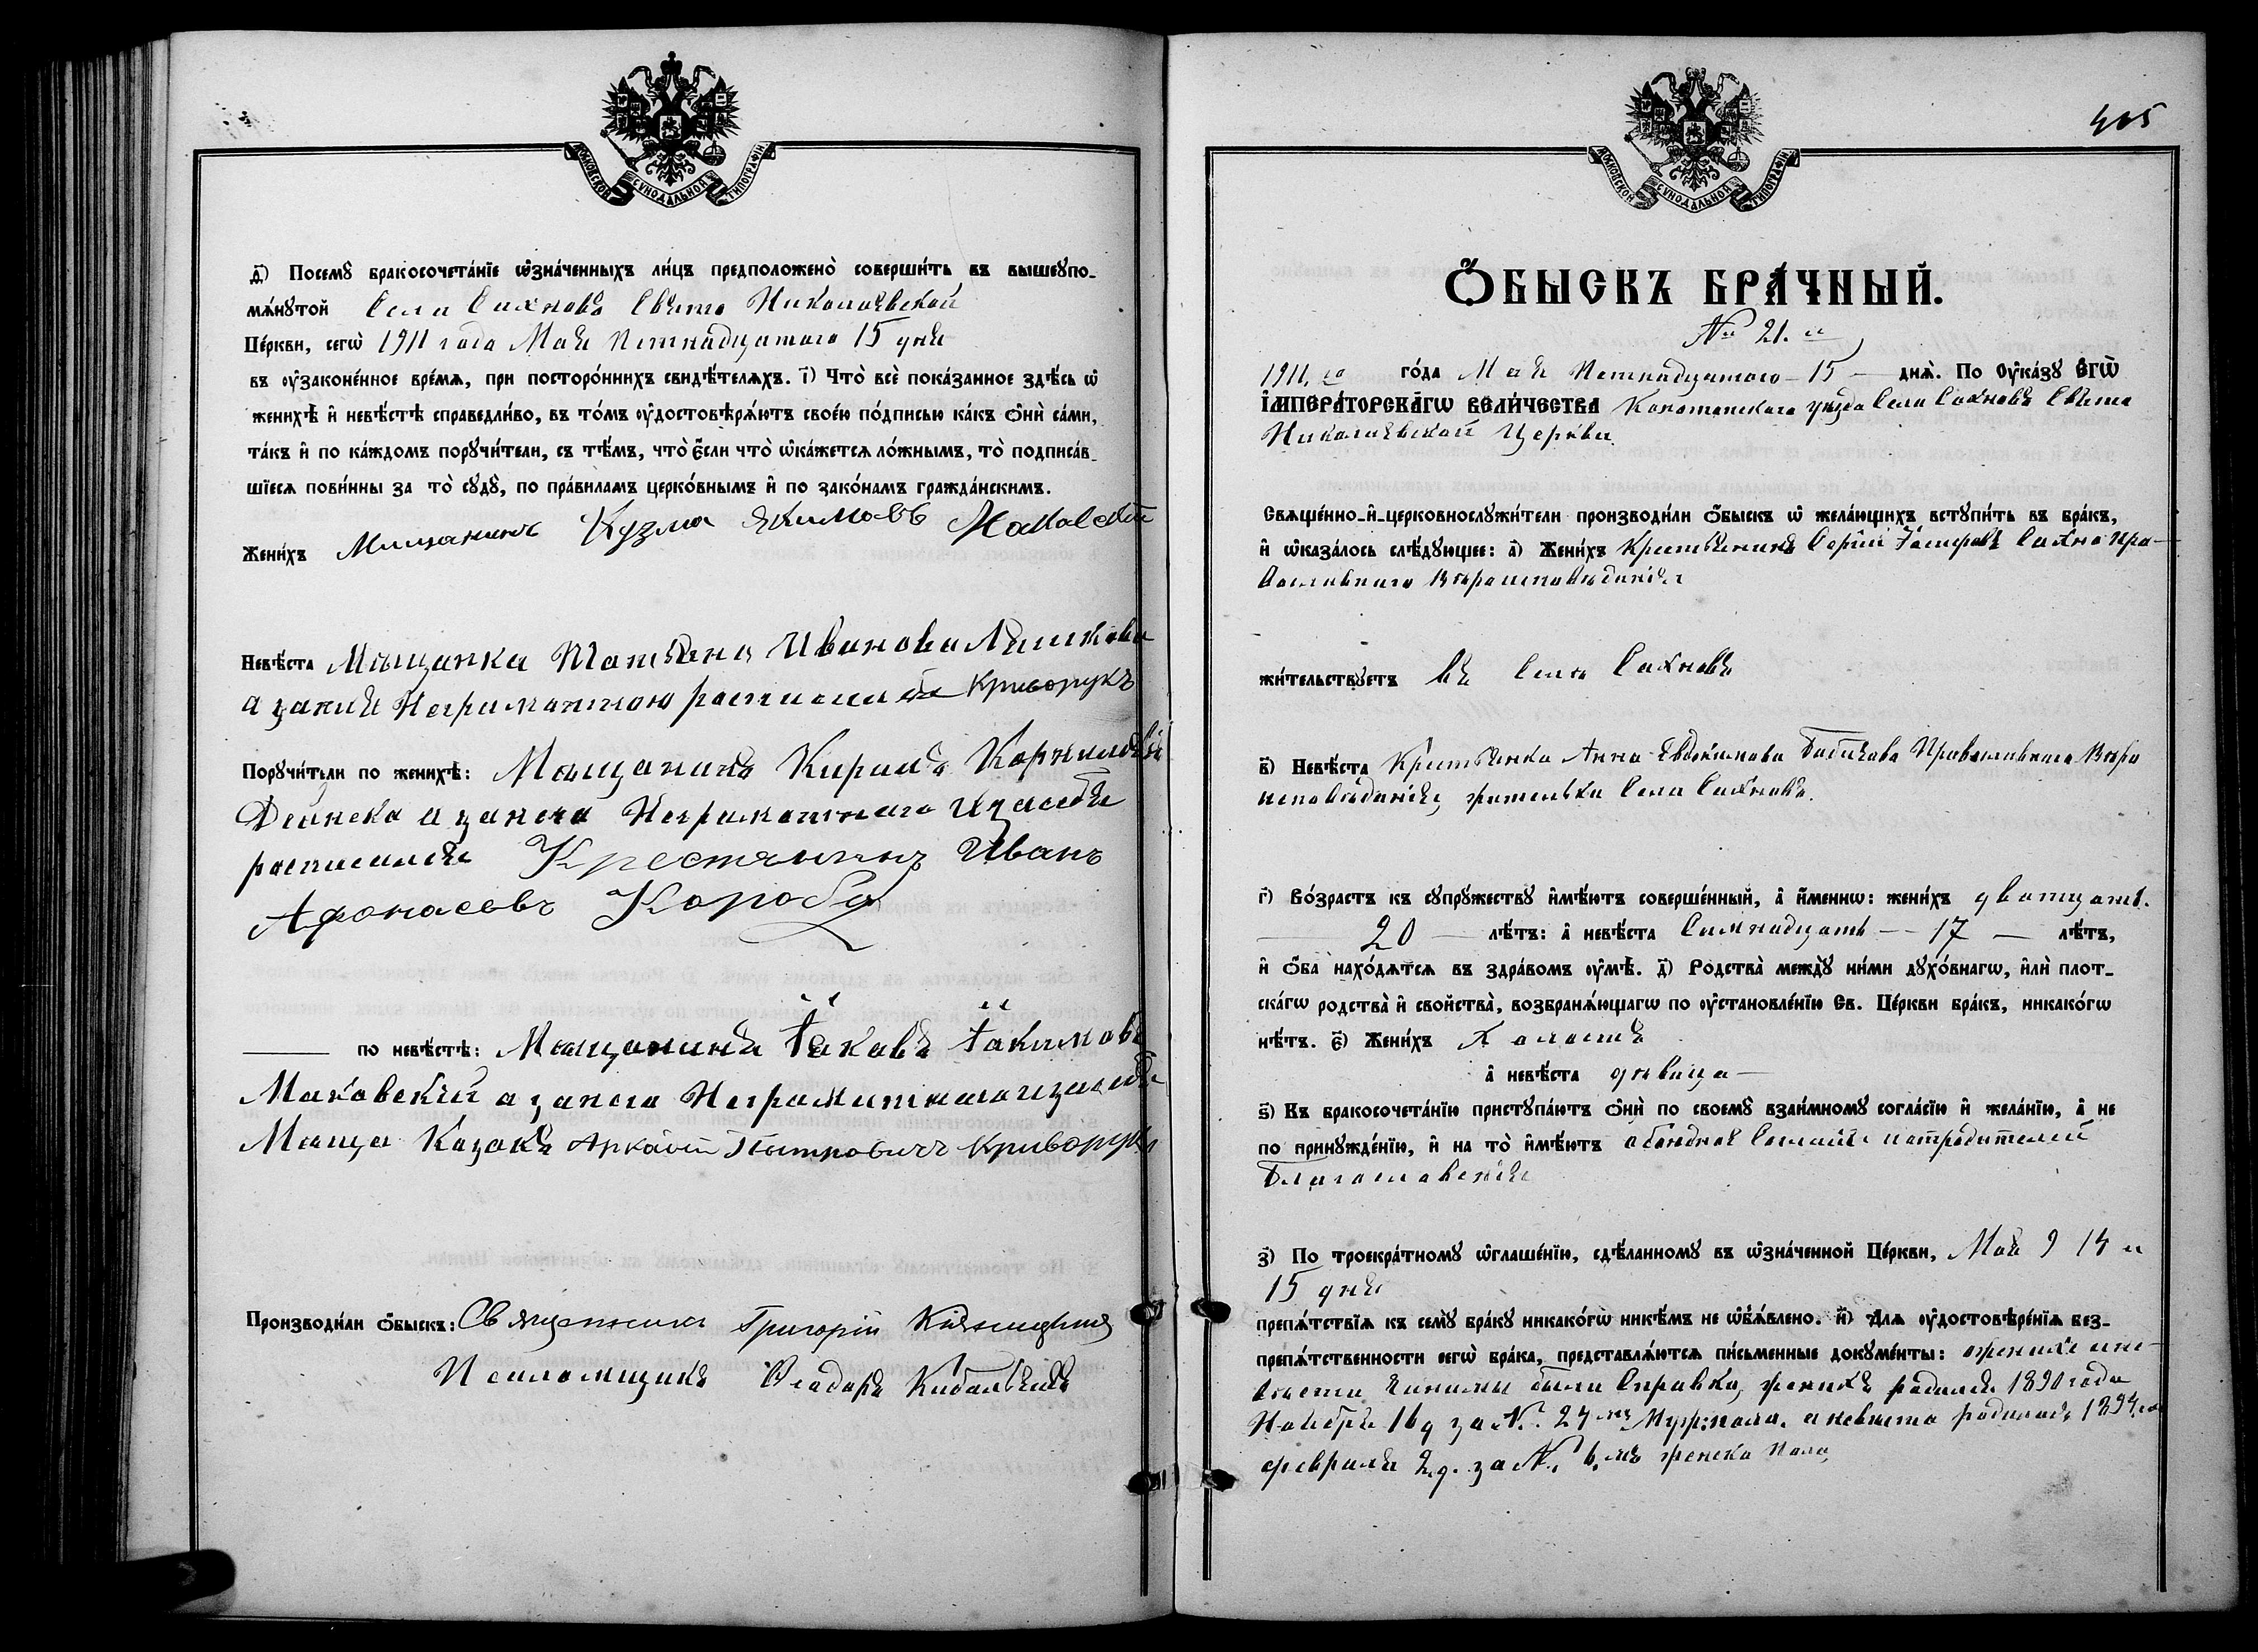 МОСКОВСКОЙ СѴНОДАЛЬНОЙ ТИПОГРАФІИ
д҃) Посемꙋ̀ бракосочета́нїе ѡ҆зна́ченныхъ ли́цъ предположено̀ соверши́ть въ вышеꙋпо-
мѧ́нꙋтой Села Сахновъ Свято Николаевской
Це́ркви, сегѡ̀ 1911 года Мая Пятнадцатого 15 дня
въ ᲂу҆законе́нное вре́мѧ, при посторо́ннихъ свидѣ́телѧхъ. і҃) Что̀ всѐ пока́занное здѣ́сь ѡ҆
женихѣ̀ и҆ невѣ́стѣ справедли́во, въ то́мъ ᲂу҆достовѣрѧ́ютъ свое́ю по́дписью ка́къ ѻ҆нѝ са́ми,
та́къ и҆ по ка́ждомъ порꙋчи́тели, съ тѣ́мъ, что̀ є҆́сли что̀ ѡ҆ка́жетсѧ ло́жнымъ, то̀ подписа́в-
шїесѧ пови́нны за то̀ сꙋдꙋ̀, по пра́виламъ церко́внымъ и҆ по зако́намъ гражда́нскимъ.
Жени́хъ Мещанинъ Кузма Якимовъ Маковскій
Невѣ́ста Мѣщанка Татіана Иванова Лашкова
а за нея Неграматною росписался Криворукъ
Порꙋчи́тели по женихѣ̀: Мѣщанинъ Кирилъ Корниліевъ
Дейнека а за него Неграматнаго и за себя
росписался Крестянинъ Иванъ
Афонасовъ Короба
по невѣ́стѣ: Мѣщанинъ Іаковъ Іакимовъ
Маковскій а за него Неграматнаго и за себя
Козакъ Аркадій Петровичъ Криворукъ
Производи́ли ѻ҆́быскъ: Священникъ Григорій
Псаломщикъ Ѳеодоръ Кибальчичъ
405
МОСКОВСКОЙ СѴНОДАЛЬНОЙ ТИПОГРАФІИ
Ѻ҆́БЫСКЪ БРА́ЧНЫЙ.
№ 21.й
1911.го го́да Мая Пятнадцатого - 15 - днѧ̀. По Оу҆ка́зꙋ Є҆ГѠ̀
І҆МПЕРА́ТОРСКАГѠ ВЕЛИ́ЧЕСТВА Конотопского уѣзда Села Сахновъ Свято
Николаевской Церкви
Свѧще́нно-и҆-церковнослꙋжи́тели производи́ли ѻ҆́быскъ ѡ҆ жела́ющихъ встꙋпи́ть въ бра́къ,
и҆ ѡ҆каза́лось слѣ́дꙋющее: а҃) Жени́хъ Крестьянинъ Сергій Сахно Пра-
вославнаго Вѣроисповѣданія
жи́тельствꙋетъ въ Селѣ Сахновъ
в҃) Невѣ́ста Крестьянка Анна Евдокимова Бабичова Православнаго Вѣро
исповѣданія, жителька Села Сахновъ.
г҃) Во́зрастъ къ сꙋпрꙋ́жествꙋ и҆мѣ́ютъ соверше́нный, а҆ и҆́меннѡ: жени́хъ двотцать
20 - лѣ́тъ: а҆ невѣ́ста Семнадцать - - 17 - лѣ́тъ,
и҆ ѻ҆́ба нахо́дѧтсѧ въ здра́вомъ ᲂу҆мѣ̀. д҃) Родства̀ междꙋ̀ ни́ми дꙋхо́внагѡ, и҆лѝ плот-
ска́гѡ родства̀ и҆ свойства̀, возбранѧ́ющагѡ по ᲂу҆становле́нїю Св. Це́ркви бра́къ, никако́гѡ
нѣ́тъ. є҃) Жени́хъ Холостъ
а҆ невѣ́ста дѣвица -
ѕ҃) Къ бракосочета́нїю пристꙋпа́ютъ ѻ҆нѝ по своемꙋ̀ взаи́мномꙋ согла́сїю и҆ жела́нїю, а҆ не
по принꙋжде́нїю, и҆ на то̀ и҆мѣ́ютъ обоюдное Согласіе и отродителей
Благословеніе
з҃) По троекра́тномꙋ ѡ҆глаше́нїю, сдѣ́ланномꙋ въ ѡ҆зна́ченной Це́ркви, Мая 9 14 и
15 дня
препѧ́тствїѧ къ семꙋ̀ бра́кꙋ никако́гѡ никѣ́мъ не ѡ҆б̾ѧ́влено. и҃) Длѧ ᲂу҆достовѣре́нїѧ без-
препѧ́тственности сегѡ̀ бра́ка, представлѧ́ютсѧ пи́сьменные докꙋме́нты: ожених и не-
вѣсти были Справки, женихъ родился 1890 года
Ноября 16 д за №. 24 мъ Муж: пола. а невѣста родилась 1894.го
февраля 2 д. за №. 6.мъ женска пола,